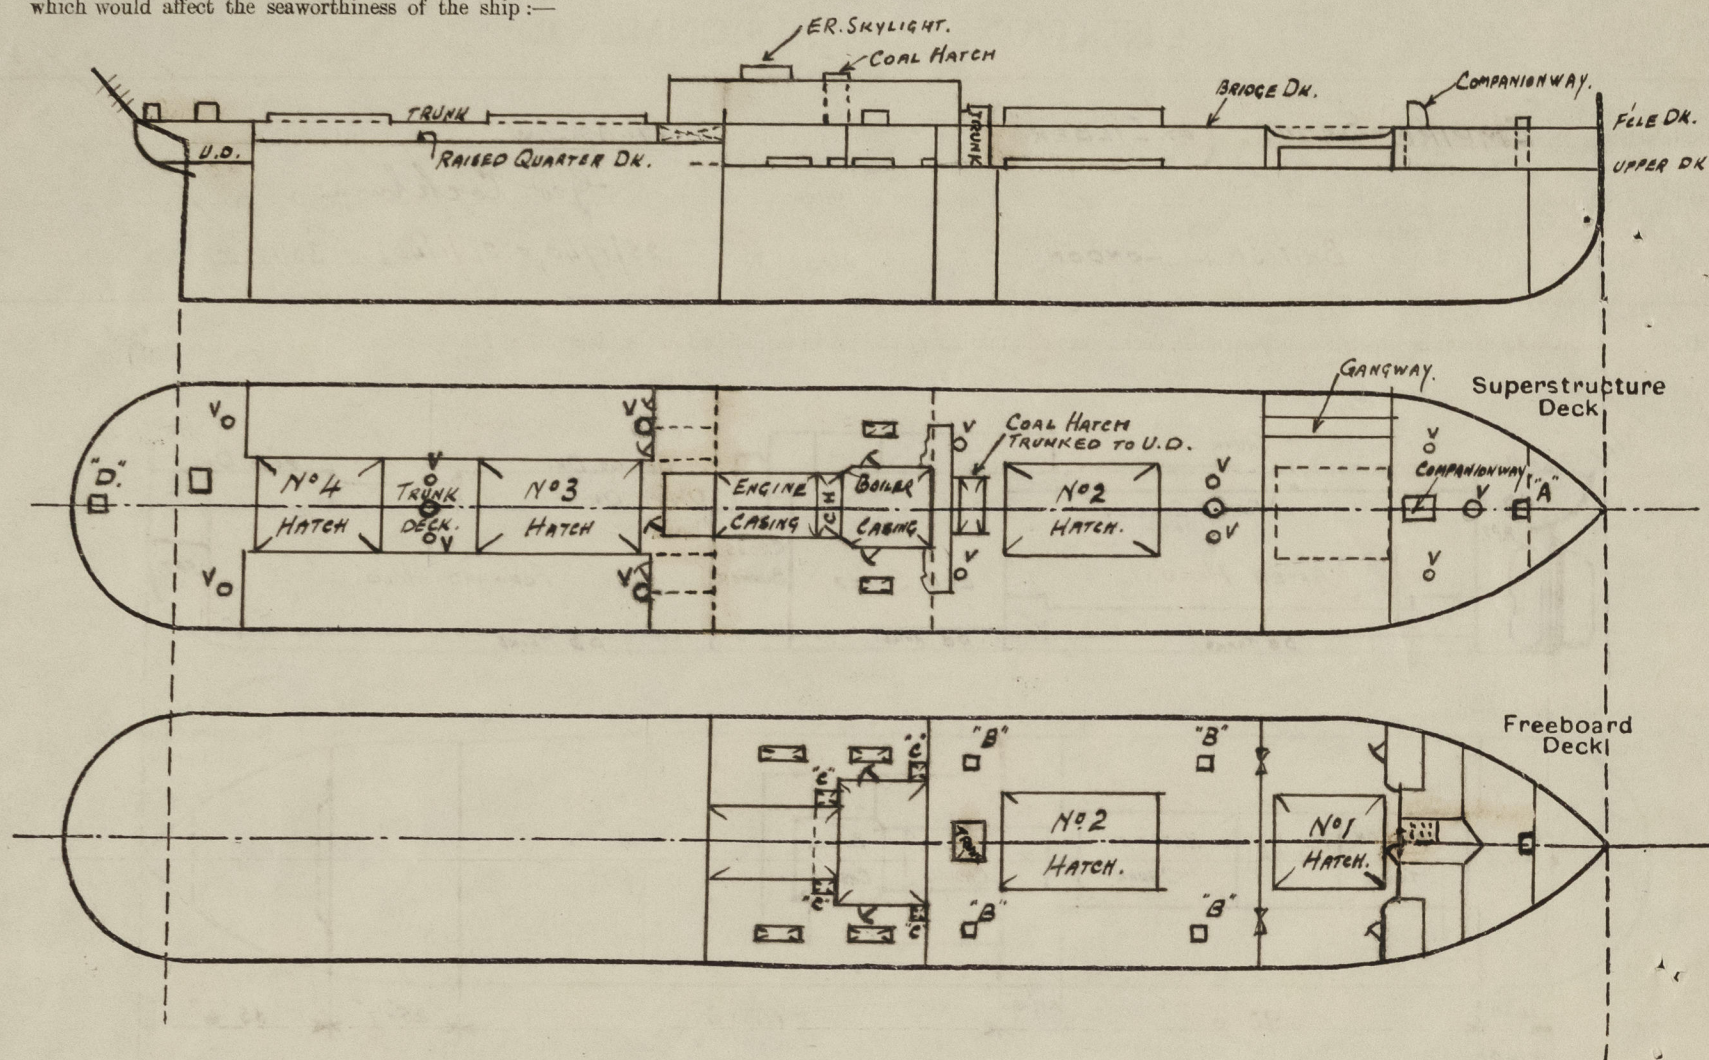 which would affect the seaworthiness of the ship :—
ER. SKYLIGHT.
COAL HATCH
COMPANIONWAY.
BRIDGE DK.
TRUNK
TRUNK
F'CLE DK.
U.D.
RAISED QUARTER DK.
UPPER DK
GANGWAY.
Superstructure
Deck
V
V
COAL HATCH
TRUNKED TO U.D.
V
V
"D".
V
V
No 4
HATCH
TRUNK
DECK.
V
No 3
HATCH
ENGINE
CASING
C H
BOILER
CASING
No 2
HATCH.
V
COMPANIONWAY
V
"A"
V
V
V
V
V
Freeboard
Deck
"C"
"B"
"B"
"C"
No. 2
HATCH.
No 1
HATCH.
"C"
"C"
"B"
"B"